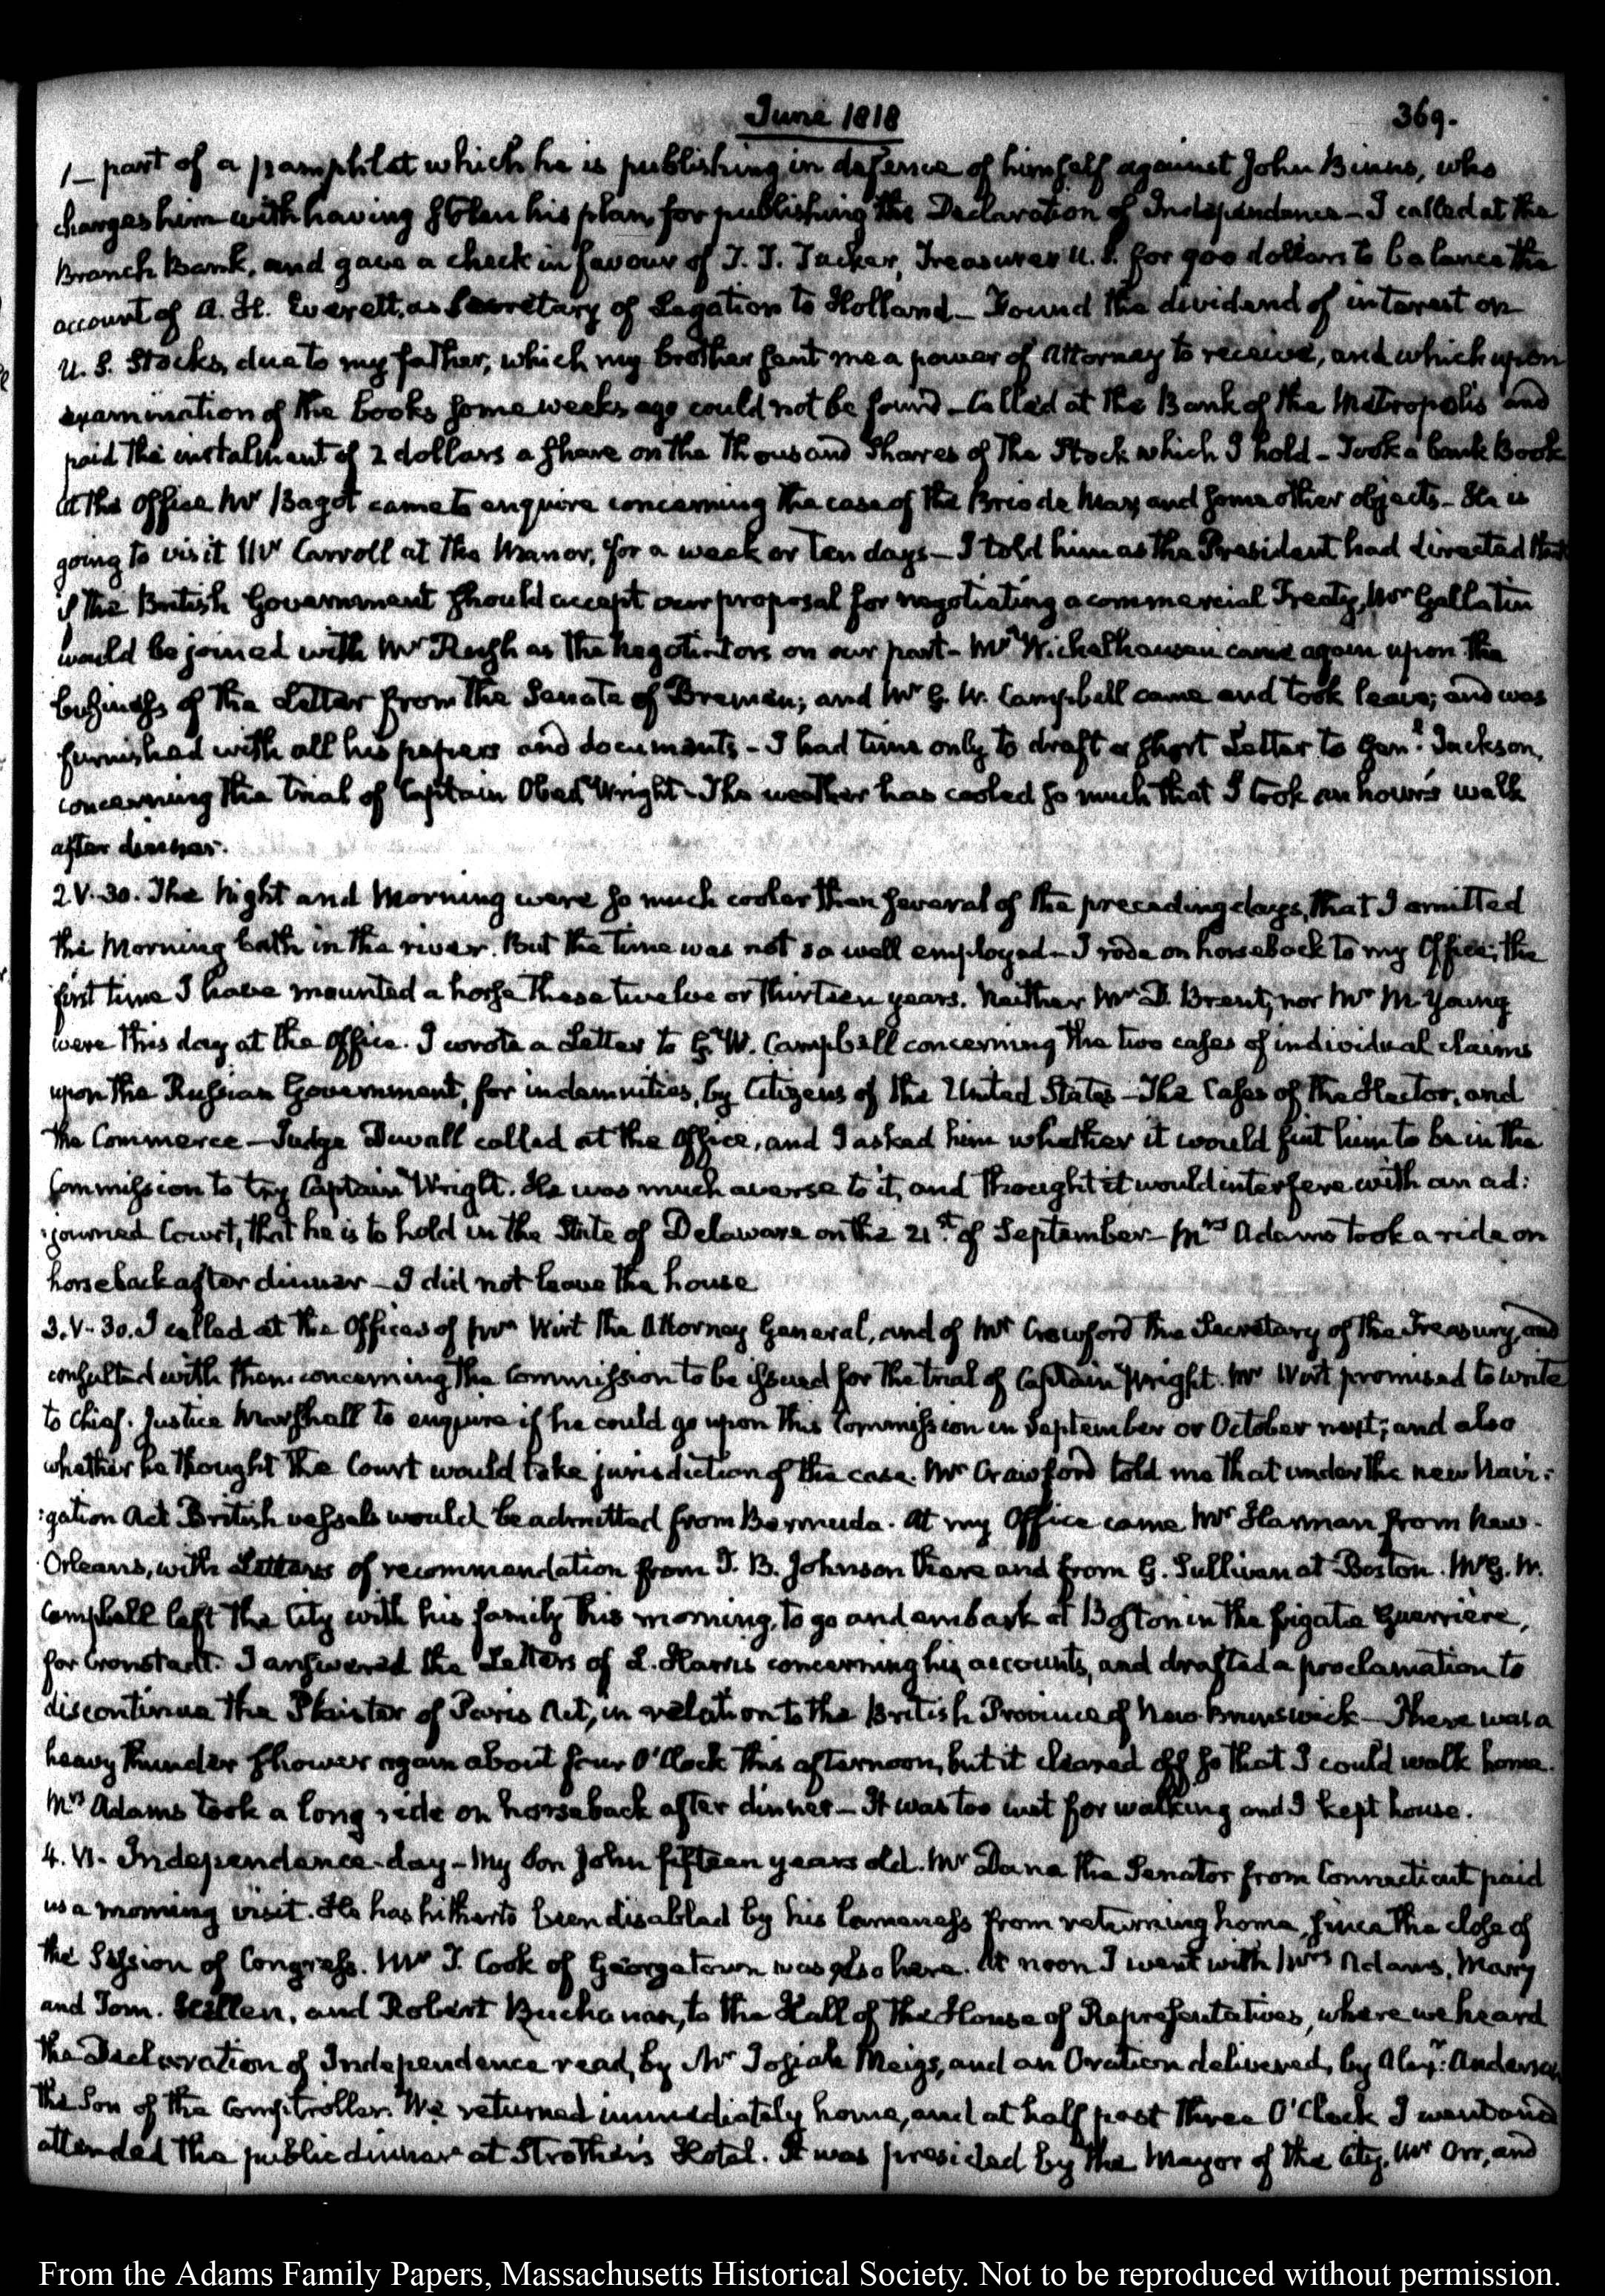 June 1818
369.
1_ part of a pamphlet which he is publishing in defence of himself against John Binns, who
charges him with having stolen his plan, for publishing the Declaration of Independence – I called at the
Branch Bank, and gave a check in favour of T. T. Tucker, Treasurer U. S. for 900 dollars to balance the
account of A. H. Everett, as Secretary of Legation to Holland – Found the dividend of interest on
U. S. Stocks, due to my father, which my brother sent me a power of Attorney to receive, and which upon
examination of the books some weeks ago could not be found – Called at the Bank of the Metropolis and
paid the instalment of 2 dollars a share on the thousand shares of the Stock which I hold – Took a bank Book
At the Office Mr Bagot came to enquire concerning the case of the Brio de Mar, and some other objects – He is
going to visit Mr Carroll at the Manor, for a week or ten days – I told him as the President had directed that
if the British Government should accept our proposal for negotiating a commercial Treaty, Mr Gallatin
would be joined with Mr Rush as the negotiators on our part – Mr Wichelhausen came again upon the
business of the Letter from the Senate of Bremen; and Mr G. W. Campbell came and took leave; and was
furnished with all his papers and documents – I had time only to draft a short Letter to Genl. Jackson,
concerning the trial of Captain Obed Wright – The weather has cooled so much that I took an hour's walk
after dinner.
2. V. 30. The Night and Morning were so much cooler than several of the preceding days, that I omitted
the Morning bath in the river. But the time was not so well employed – I rode on horseback to my Office; the
first time I have mounted a horse these twelve or thirteen years. Neither Mr D. Brent, nor Mr M. Young
were this day at the Office. I wrote a Letter to G. W. Campbell concerning the two cases of individual claims
upon the Russian Government, for indemnities, by Citizens of the United States – The Cases of the Hector, and
the Commerce – Judge Duvall called at the Office, and I asked him whether it would suit him to be in the
Commission to try Captain Wright. He was much averse to it, and thought it would interfere with an ad:
:journed Court, that he is to hold in the State of Delaware on the 21st. of September – Mrs Adams took a ride on
horseback after dinner – I did not leave the house
3. V. 30. I called at the Offices of Mr Wirt the Attorney General, and of Mr Crawford the Secretary of the Treasury, and
consulted with them concerning the Commission to be issued for the trial of Captain Wright. Mr Wirt promised to write
to Chief Justice Marshall to enquire if he could go upon this Commission in September or October next; and also
whether he thought the Court would take jurisdiction of the case. Mr Crawford told me that under the new Navi:
:gation Act British vessels would be admitted from Bermuda. At my Office came Mr Harman from New-
Orleans, with Letters of recommendation from J. B. Johnson there and from G. Sullivan at Boston. Mr G. W.
Campbell left the City with his family this morning, to go and embark at Boston in the frigate Guerriere,
for Cronstadt. I answered the Letters of L. Harris concerning his accounts, and drafted a proclamation to
discontinue the Plaister of Paris Act, in relation to the British Province of New-Brunswick – There was a
heavy thunder shower again about four O'Clock this afternoon, but it cleared off so that I could walk home.
Mrs Adams took a long ride on horseback after dinner – It was too wet for walking and I kept house.
4. VI. Independence-day – My Son John fifteen years old. Mr Dana the Senator from Connecticut paid
us a morning visit. He has hitherto been disabled by his lameness from returning home, since the close of
the Session of Congress. Mr T. Cook of Georgetown was also here. At noon I went with Mrs Adams, Mary
and Tom. Hellen, and Robert Buchanan, to the Hall of the House of Representatives, where we heard
the Declaration of Independence read, by Mr Josiah Meigs, and an Oration delivered, by Alexr. Anderson
the Son of the Comptroller. We returned immediately home, and at half past three O'Clock I went and
attended the public dinner at Strother's Hotel. It was presided by the Mayor of the City, Mr Orr, and
From the Adams Family Papers, Massachusetts Historical Society. Not to be reproduced without permission.